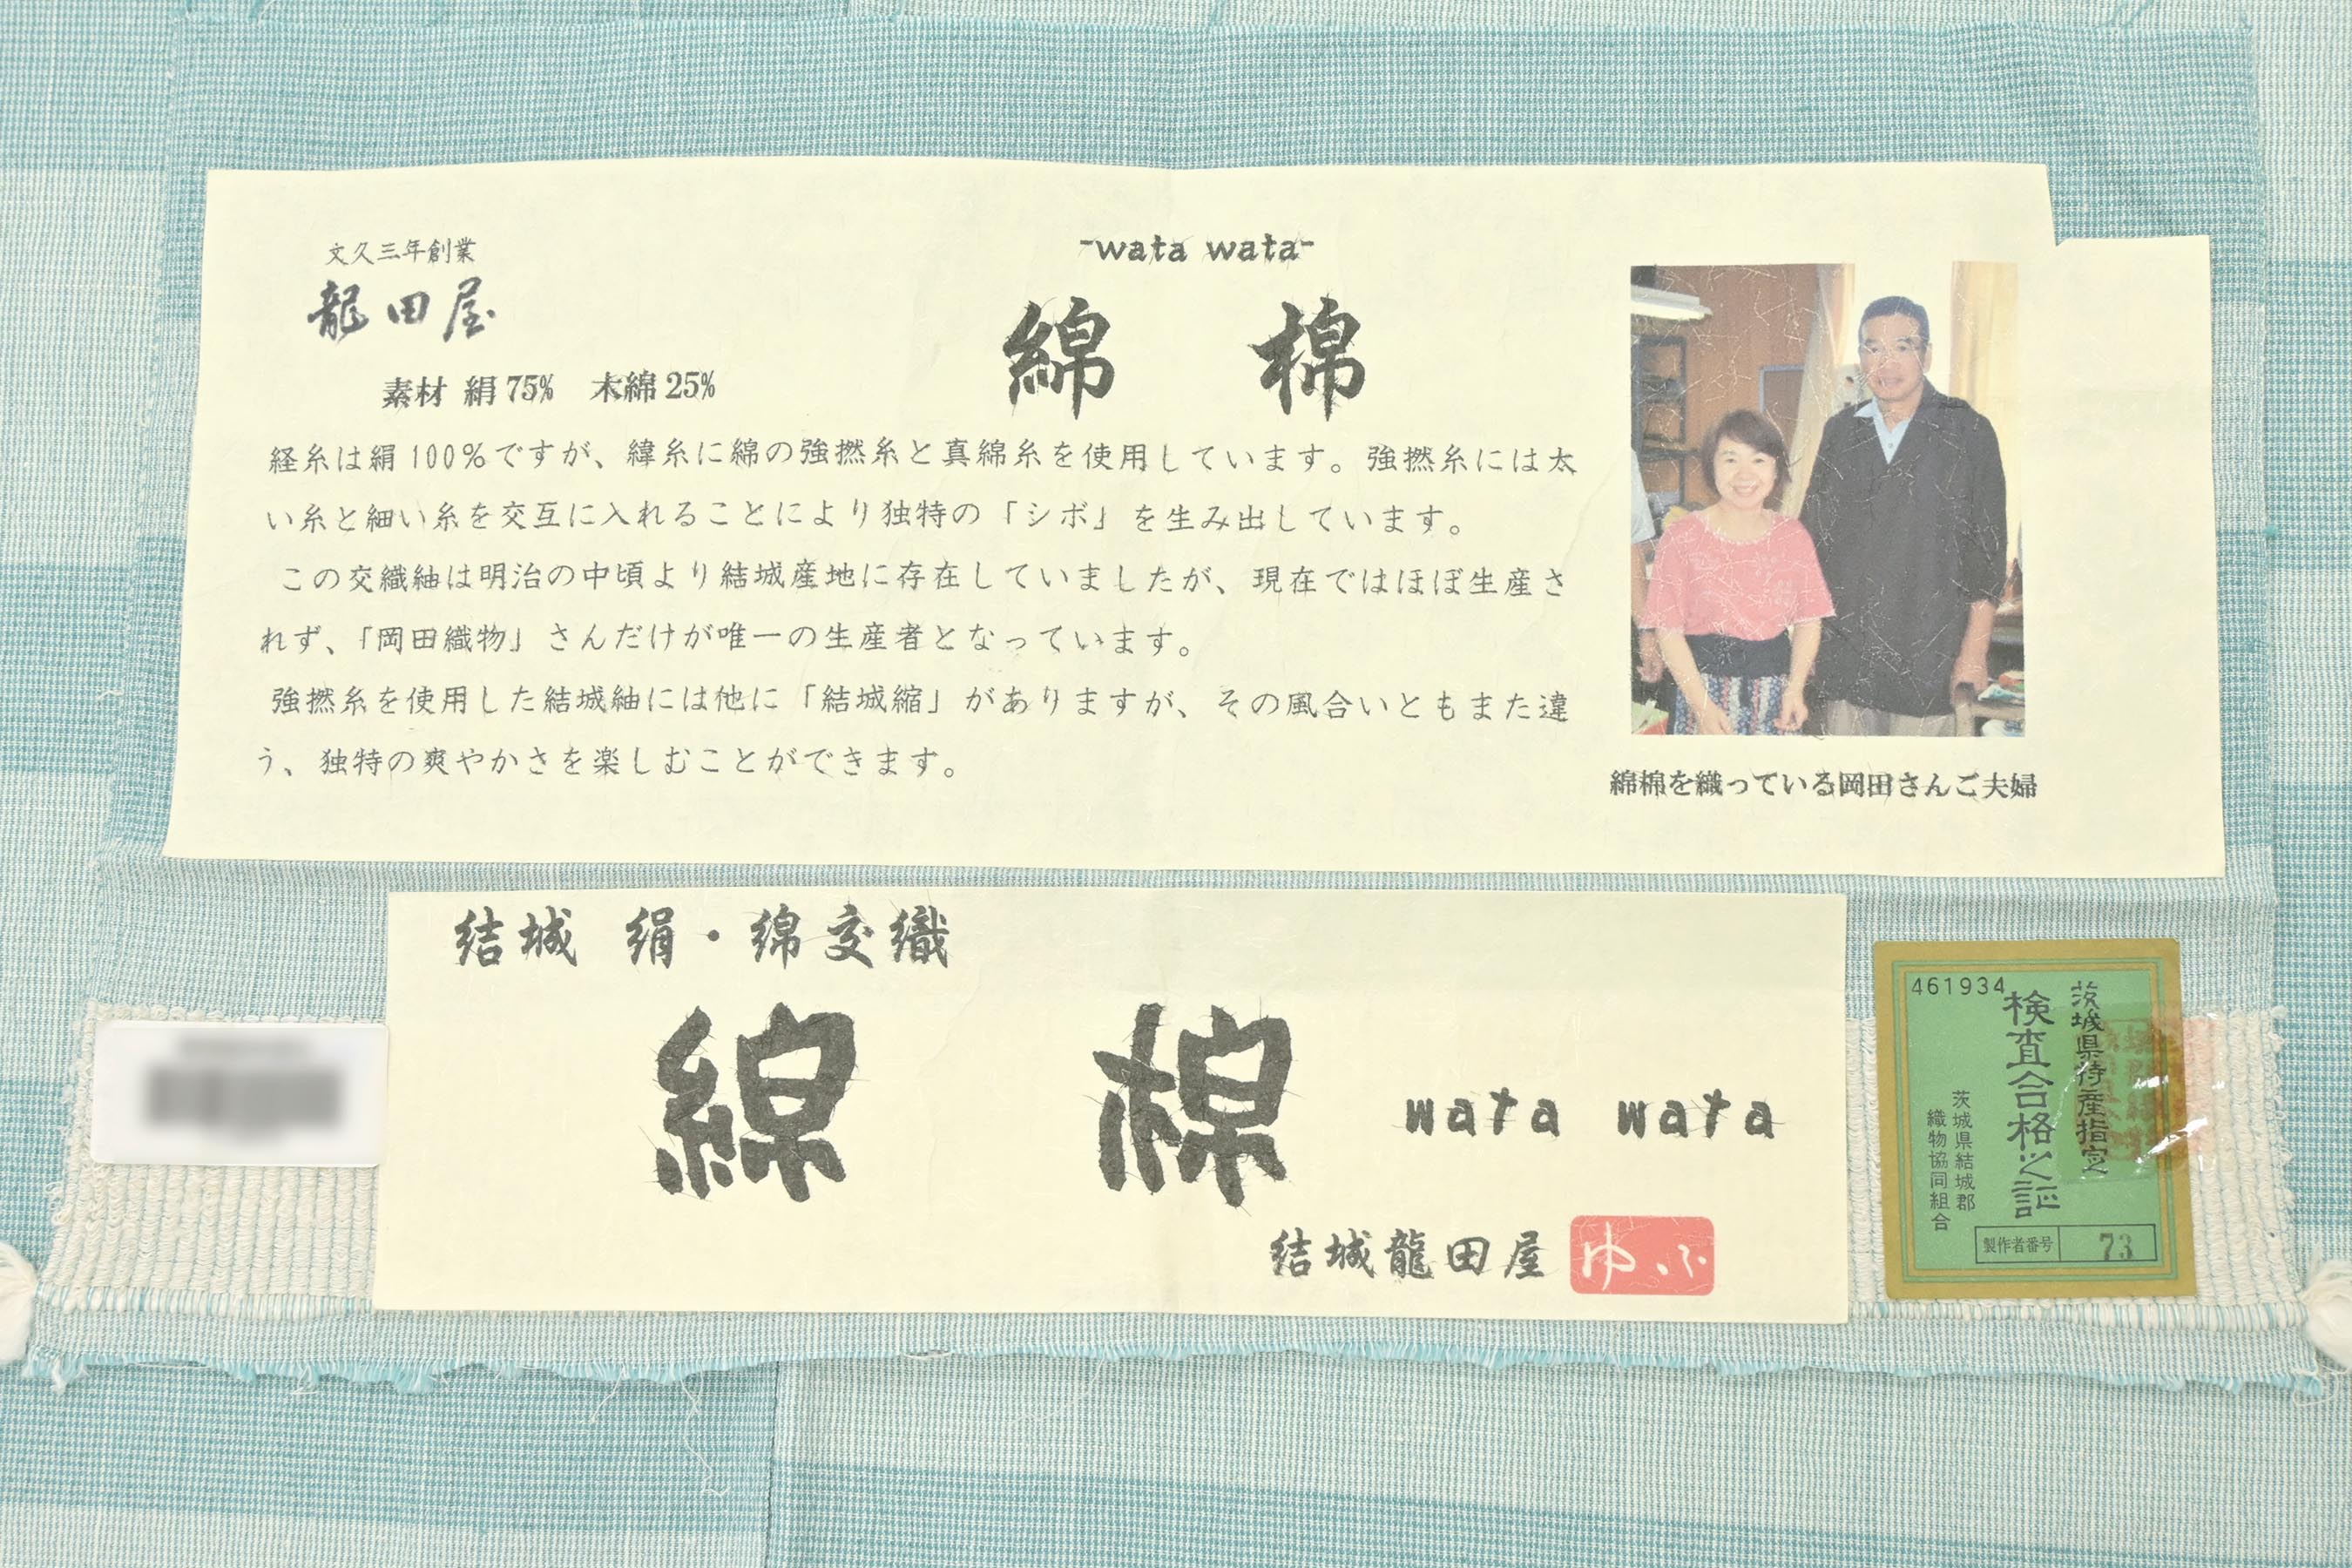 文久三年創業
龍田屋
素材 絹75% 木綿25%
-wata wata-
綿 棉
経糸は絹100%ですが、緯糸に綿の強撚糸と真綿糸を使用しています。強撚糸には太
い糸と細い糸を交互に入れることにより独特の「シボ」を生み出しています。
この交織紬は明治の中頃より結城産地に存在していましたが、現在ではほぼ生産さ
れず、「岡田織物」さんだけが唯一の生産者となっています。
強撚糸を使用した結城紬には他に「結城縮」がありますが、その風合いともまた違
う、独特の爽やかさを楽しむことができます。
綿棉を織っている岡田さんご夫婦
結城 絹・綿交織
綿 棉
wata wata
結城龍田屋
ゆふ
461934
茨城県特産指定
検査合格之証
茨城県結城郡
織物協同組合
製作者番号 73